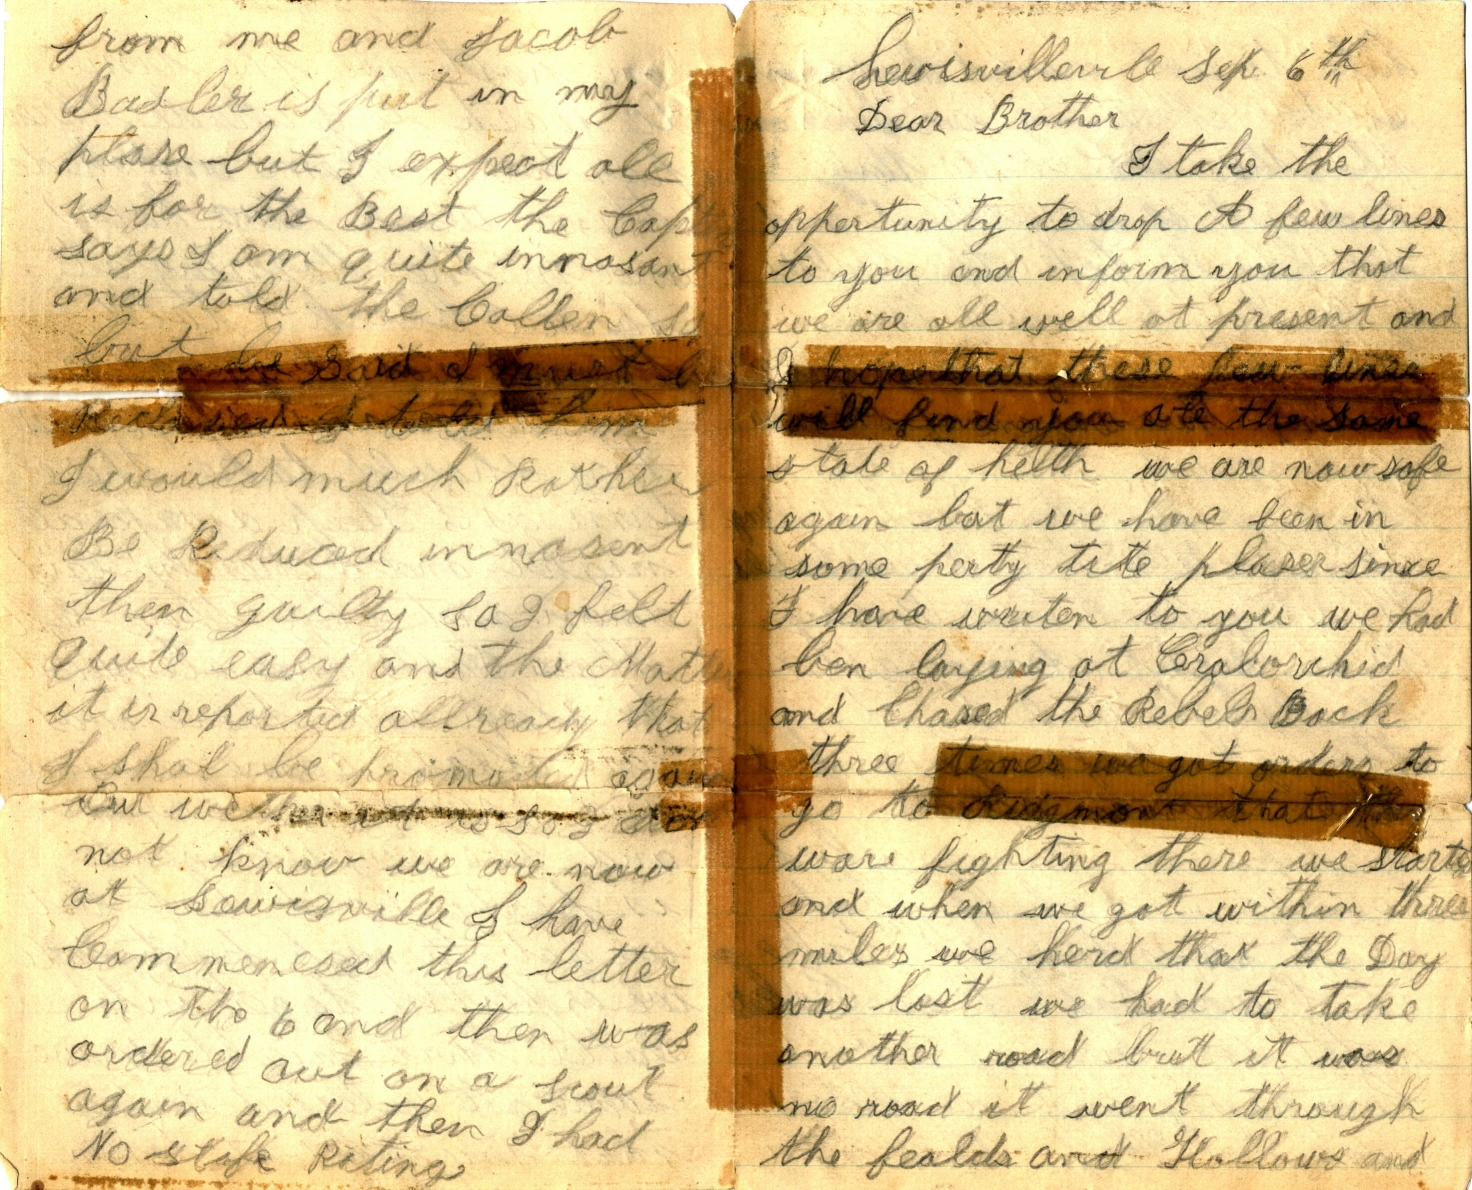 Lewisvillevile Sep. 6th
Dear Brother
I take the
oppertunity to drop A few lines
to you and inform you that
we are all well at present and
I hope that these few lines
will find you all the same
state of helth we are now safe
again but we have been in
some perty tite plases since
I have writen to you we had
ben laying at Craborchid
and Chased the Rebels Back
three times we got orders to
go to Richmond that they
ware fighting there we started
and when we got within three
miles we herd that the Day
was lost we had to take
another road but it was
no road it went through
the fealds and Hollows and
from me and Jacob
Badler is put in my
plase but I expect all
is for the Best the Capt
says I am quite innosant
and told the Collen so
but he said I must be
Reduced I told him
I would much Rather
Be Reduced innosent
then guilty So I felt
quite easy and the Matter
it is reported allready that
I shal be promoted again
But wether it is so I Dont
not know we are now
at Lewisville I have
Commenesed this letter
on the 6 and then was
ordered out on a scout
again and then I had
No stafe Riting